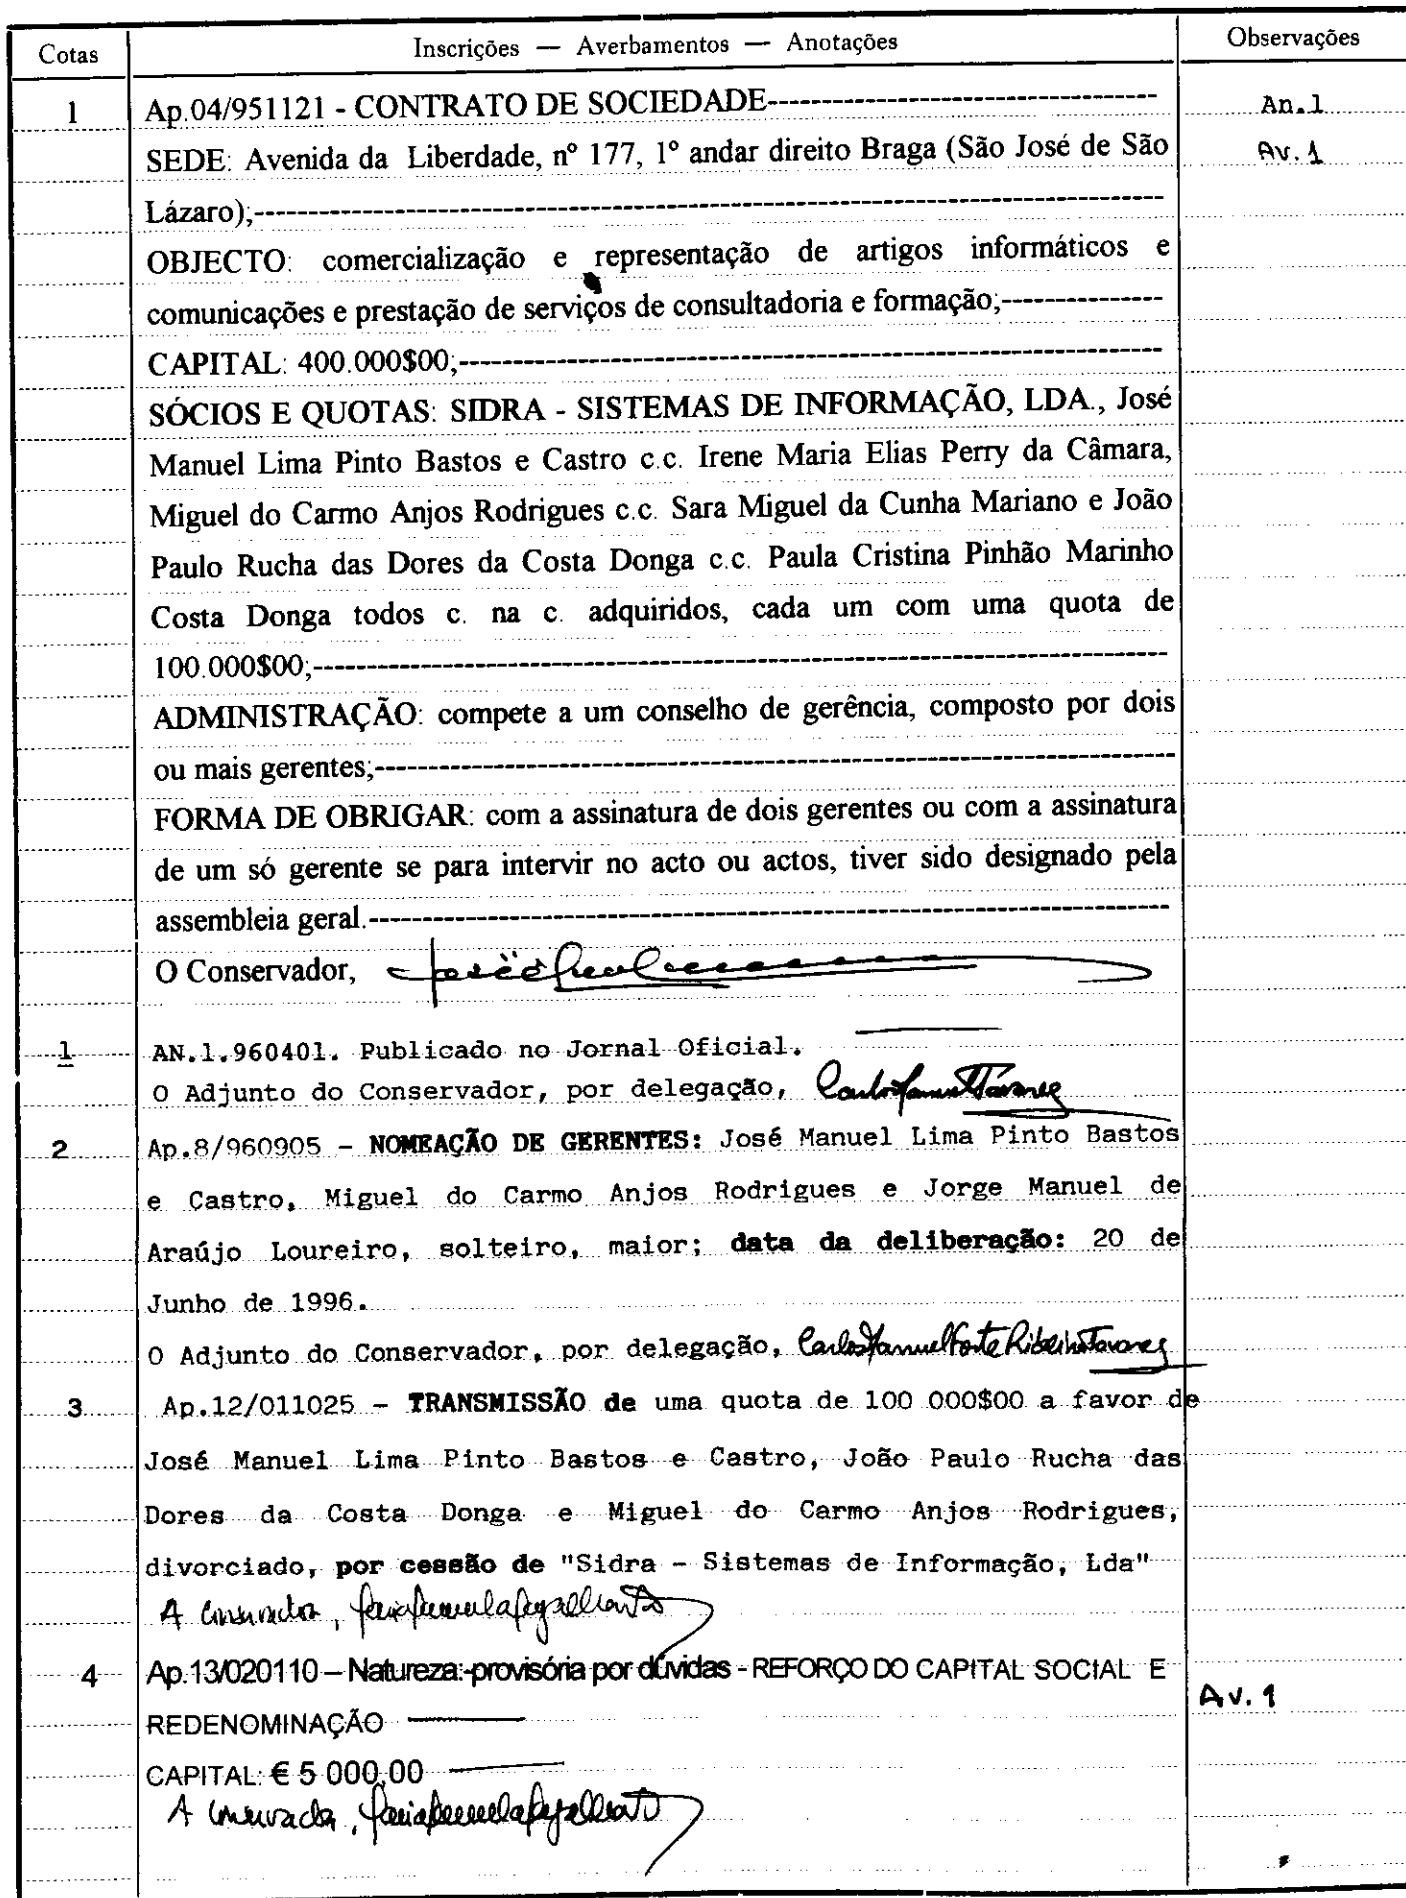 Cotas Inscrições — Averbamentos — Anotações Observações
1 Ap.04/951121 - CONTRATO DE SOCIEDADE------------------------------------ An.1
SEDE: Avenida da Liberdade, nº 177, 1º andar direito Braga (São José de São Av.1
Lázaro);------------------------------------------------------------------------------------
OBJECTO: comercialização e representação de artigos informáticos e
comunicações e prestação de serviços de consultadoria e formação;---------------
CAPITAL: 400.000$00;-----------------------------------------------------------------
SÓCIOS E QUOTAS: SIDRA - SISTEMAS DE INFORMAÇÃO, LDA., José
Manuel Lima Pinto Bastos e Castro c.c. Irene Maria Elias Perry da Câmara,
Miguel do Carmo Anjos Rodrigues c.c. Sara Miguel da Cunha Mariano e João
Paulo Rucha das Dores da Costa Donga c.c. Paula Cristina Pinhão Marinho
Costa Donga todos c. na c. adquiridos, cada um com uma quota de
100.000$00;-------------------------------------------------------------------------------
ADMINISTRAÇÃO: compete a um conselho de gerência, composto por dois
ou mais gerentes;--------------------------------------------------------------------------
FORMA DE OBRIGAR: com a assinatura de dois gerentes ou com a assinatura
de um só gerente se para intervir no acto ou actos, tiver sido designado pela
assembleia geral.--------------------------------------------------------------------------
O Conservador,
1 AN.1.960401. Publicado no Jornal Oficial.
O Adjunto do Conservador, por delegação, Carlos Manuel Tavares
2 Ap.8/960905 - NOMEAÇÃO DE GERENTES: José Manuel Lima Pinto Bastos
e Castro, Miguel do Carmo Anjos Rodrigues e Jorge Manuel de
Araújo Loureiro, solteiro, maior; data da deliberação: 20 de
Junho de 1996.
O Adjunto do Conservador, por delegação, Carlos Manuel Forte Ribeiro Tavares
3 Ap.12/011025 - TRANSMISSÃO de uma quota de 100 000$00 a favor de
José Manuel Lima Pinto Bastos e Castro, João Paulo Rucha das
Dores da Costa Donga e Miguel do Carmo Anjos Rodrigues,
divorciado, por cessão de "Sidra - Sistemas de Informação, Lda"
A Conservadora,
4 Ap.13/020110 – Natureza:-provisória por dúvidas - REFORÇO DO CAPITAL SOCIAL E
REDENOMINAÇÃO Av.1
CAPITAL: € 5 000,00
A Conservadora,